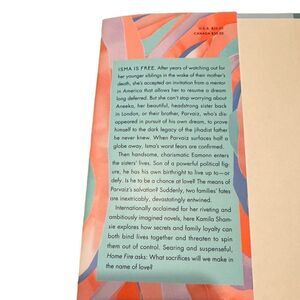 U.S.A. $26.00
CANADA $35.00
ISMA IS FREE. After years of watching out for
her younger siblings in the wake of their mother's
death, she's accepted an invitation from a mentor
in America that allows her to resume a dream
long deferred. But she can't stop worrying about
Aneeka, her beautiful, headstrong sister back
in London, or their brother, Parvaiz, who's dis-
appeared in pursuit of his own dream, to prove
himself to the dark legacy of the jihadist father
he never knew. When Parvaiz surfaces half a
globe away, Isma's worst fears are confirmed.
Then handsome, charismatic Eamonn enters
the sisters' lives. Son of a powerful political fig-
ure, he has his own birthright to live up to—or
defy. Is he to be a chance at love? The means of
Parvaiz's salvation? Suddenly, two families' fates
are inextricably, devastatingly entwined.
Internationally acclaimed for her riveting and
ambitiously imagined novels, here Kamila Sham-
sie explores how secrets and family loyalty can
both bind lives together and threaten to spin
them out of control. Searing and suspenseful,
Home Fire asks: What sacrifices will we make in
the name of love?